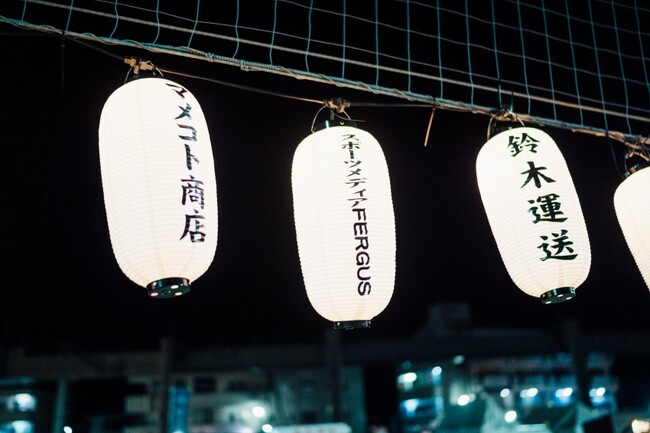 マメコト商店
スポーツメディアFERGUS
鈴木運送